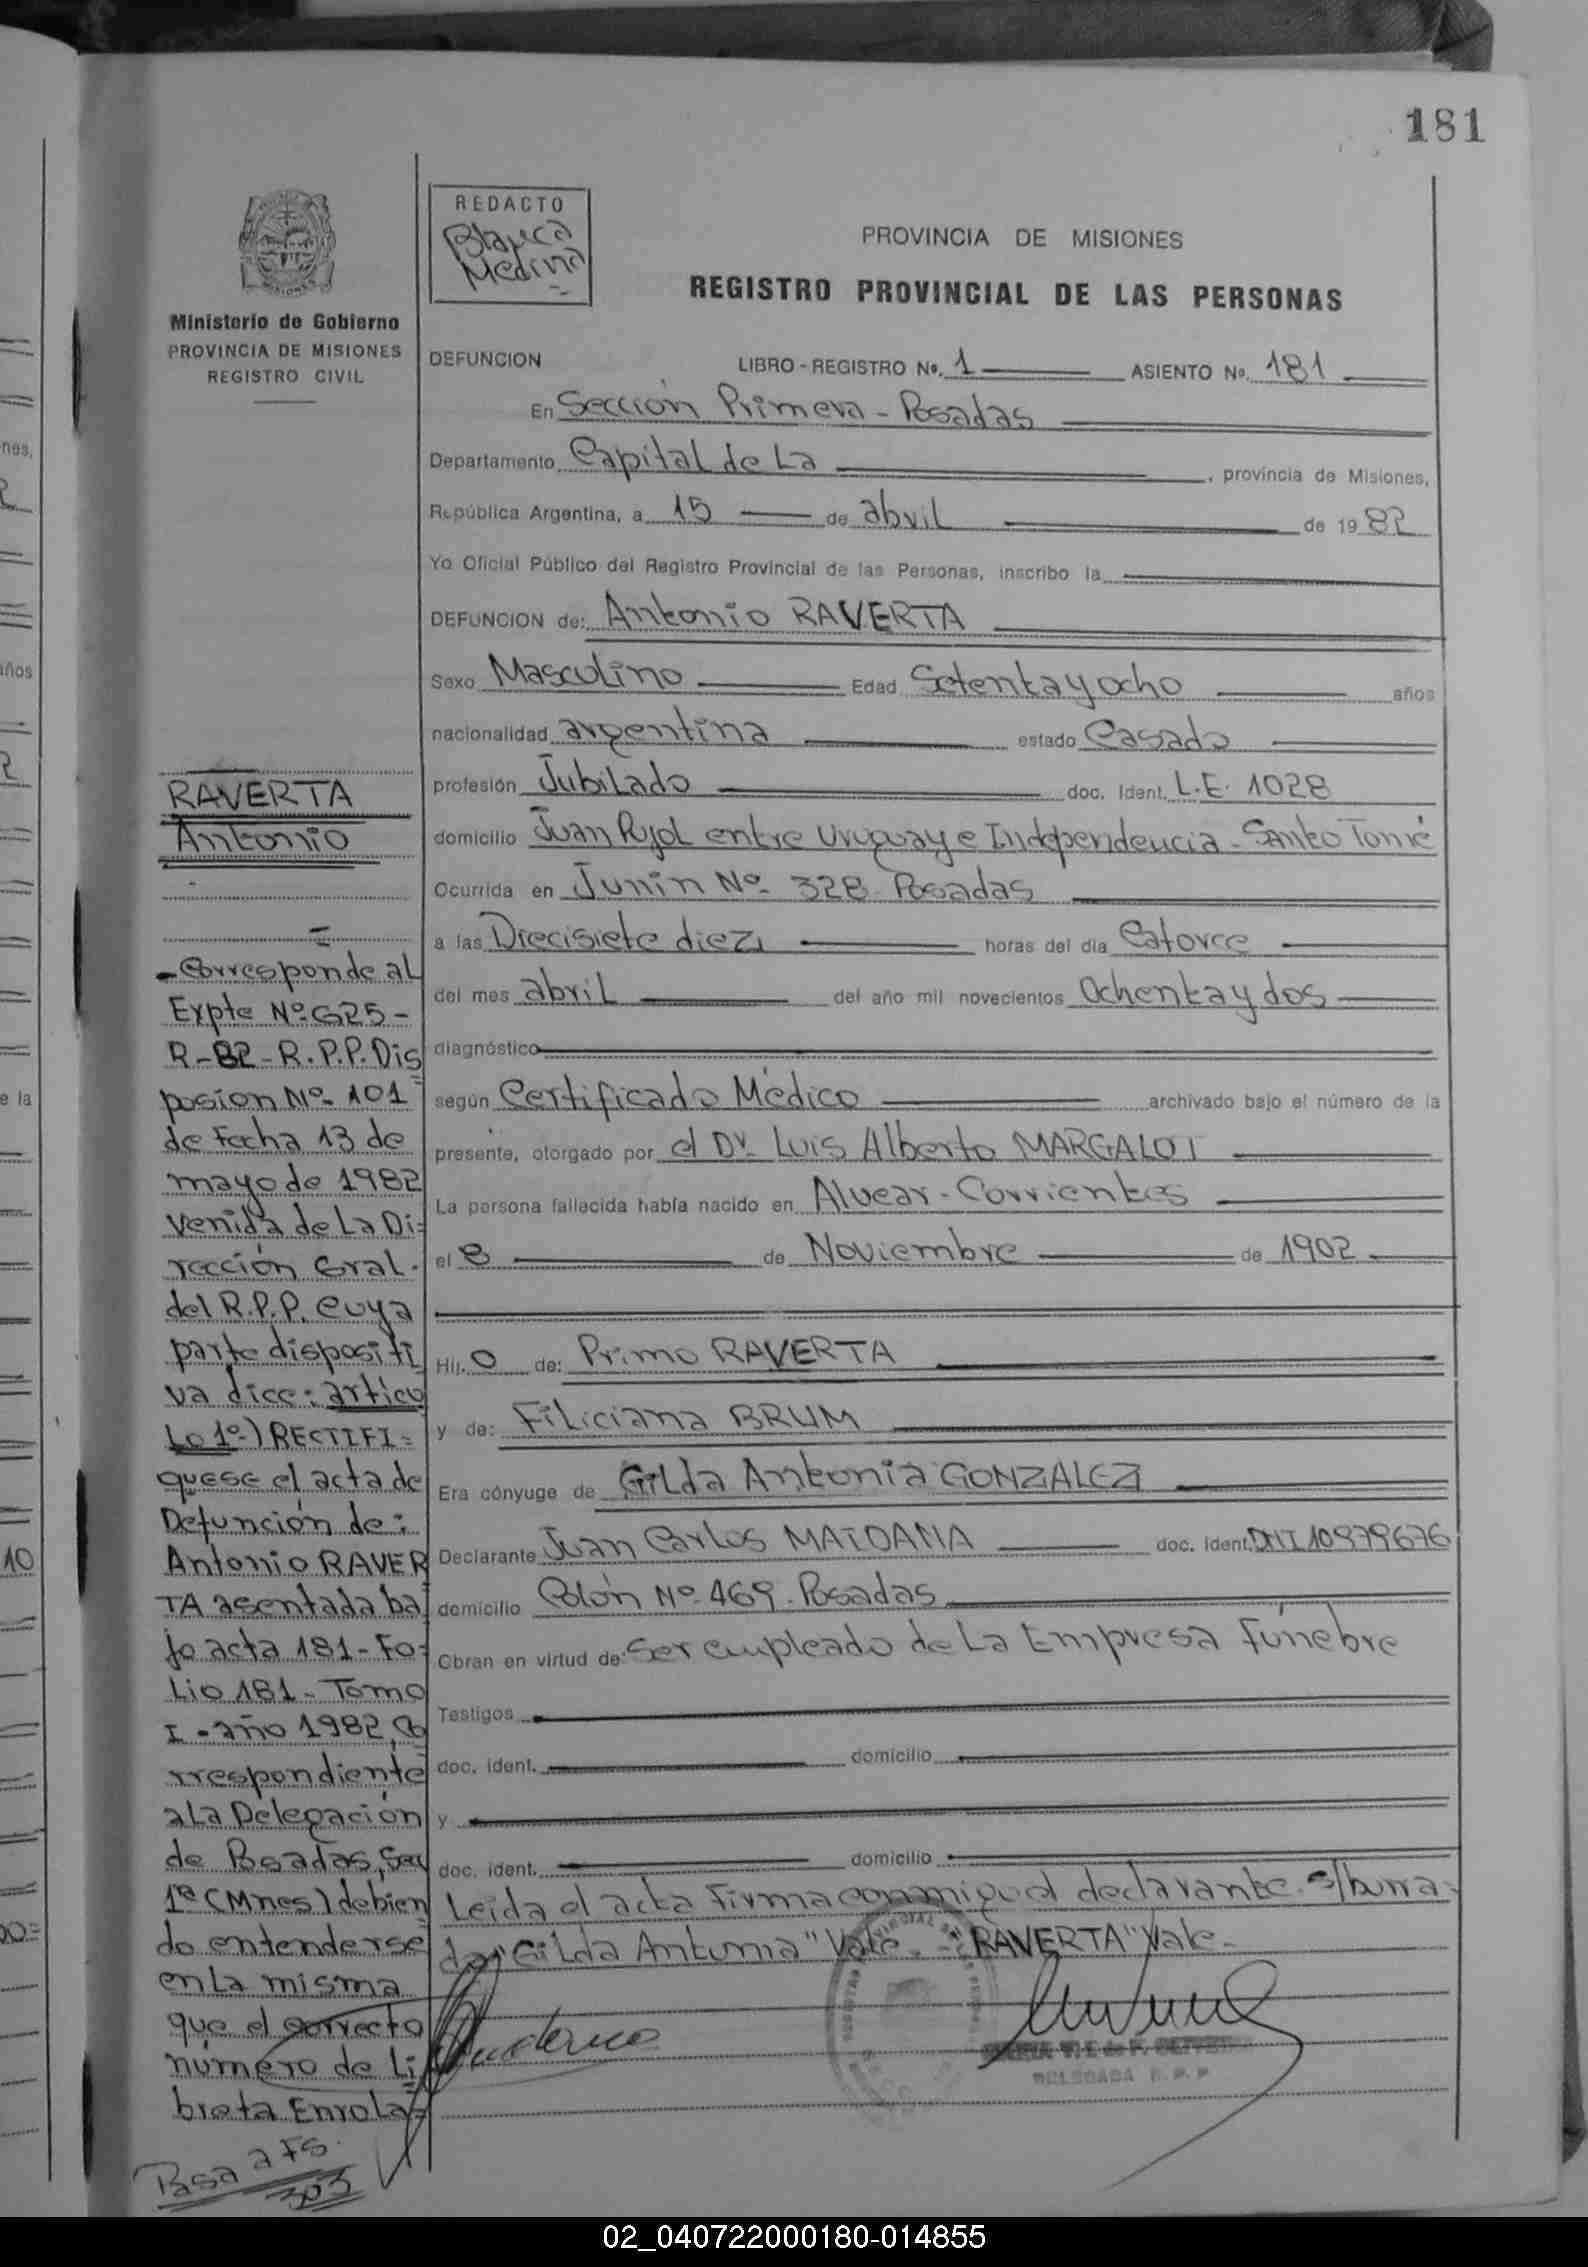 181
REDACTO
Blanca
Medina
PROVINCIA DE MISIONES
REGISTRO PROVINCIAL DE LAS PERSONAS
Ministerio de Gobierno
PROVINCIA DE MISIONES
REGISTRO CIVIL
DEFUNCION LIBRO - REGISTRO No. 1 ASIENTO No. 181
En Sección Primera - Posadas
Departamento Capital de La , provincia de Misiones,
República Argentina, a 15 de abril de 1982
Yo Oficial Público del Registro Provincial de las Personas, inscribo la
DEFUNCION de: Antonio RAVERTA
Sexo Masculino Edad Setenta y ocho años
nacionalidad argentina estado Casado
profesión Jubilado doc. Ident. L.E. 1028
domicilio Juan Pujol entre Uruguay e Independencia - Santo Tomé
Ocurrida en Junín No 328 - Posadas
a las Diecisiete diez horas del día Catorce
del mes abril del año mil novecientos Ochenta y dos
diagnóstico
según Certificado Médico archivado bajo el número de la
presente, otorgado por el Dr. Luis Alberto MARGALOT
La persona fallecida había nacido en Alvear - Corrientes
el 8 de Noviembre de 1902
Hij o de: Primo RAVERTA
y de: Filiciana BRUM
Era cónyuge de Gilda Antonia GONZALEZ
Declarante Juan Carlos MAIDANA doc. ident. DNI 10979676
domicilio Colón No 469 - Posadas
Obran en virtud de: Ser empleado de La Empresa Fúnebre
Testigos
doc. ident. domicilio
y
doc. ident. domicilio
Leída el acta firma conmigo el declarante. S/borra-
do: "Gilda Antonia" Vale. - "RAVERTA" Vale -
DELEGADA R. P. P.
RAVERTA
Antonio
- Corresponde al
Expte No G25-
R-82-R.P.P. Dis
posion No 101
de Fecha 13 de
mayo de 1982
venida de La Di=
rección Gral.
del R.P.P. cuya
parte dispositi
va dice: artícu
Lo 1º) RECTIFI=
quese el acta de
Defunción de:
Antonio RAVER
TA asentada ba
jo acta 181 - Fo=
Lio 181 - Tomo
I - año 1982, Co
rrespondiente
a La Delegación
de Posadas, Sec
1ª (Mnes) debien
do entenderse
en La misma
que el correcto
número de Li
breta Enrola=
Pasa a Fs.
303
02_040722000180-014855